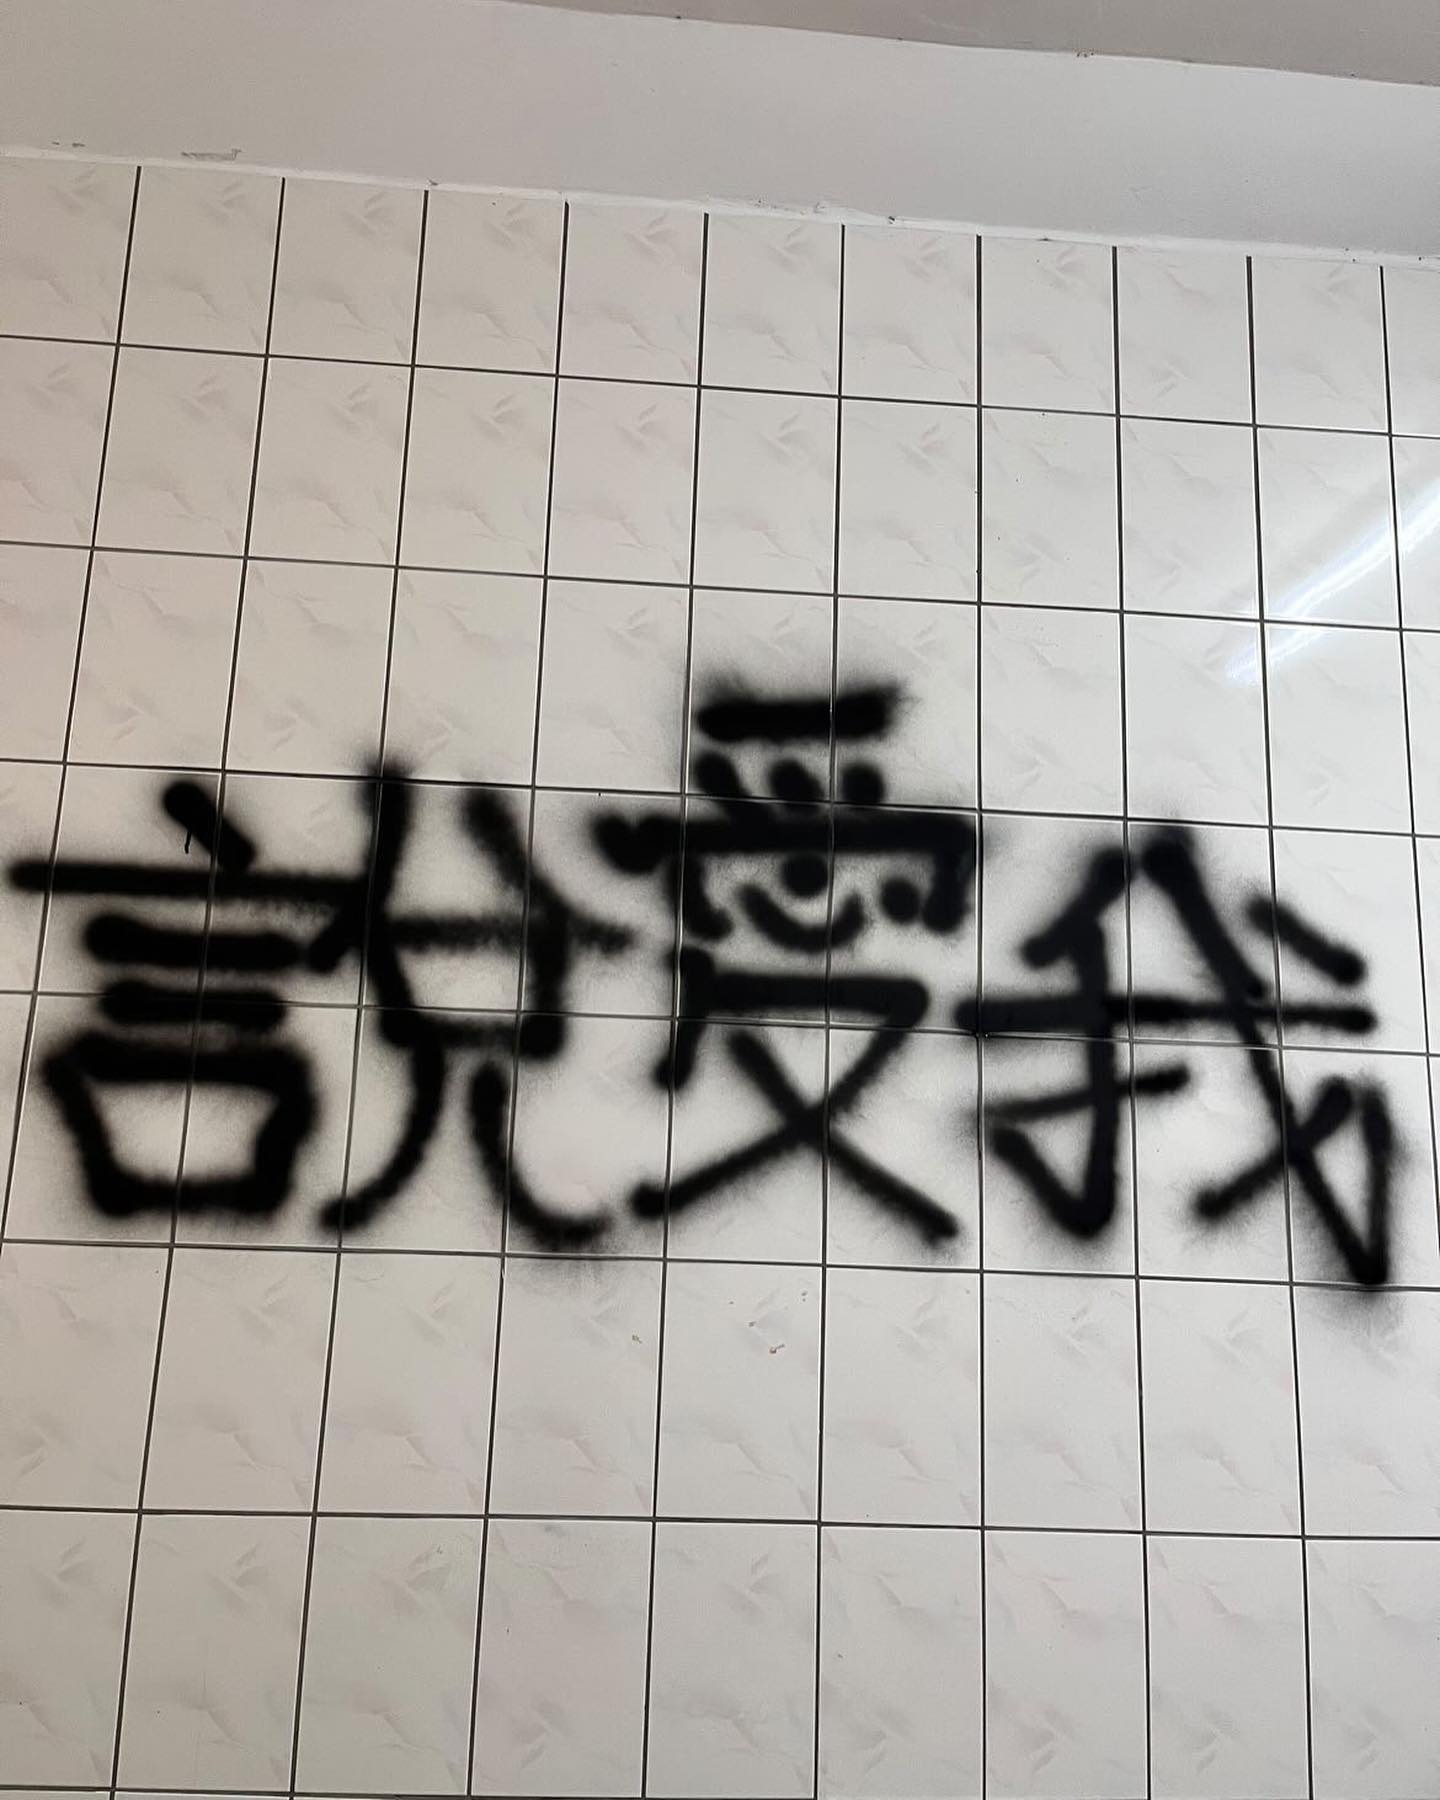 說愛我